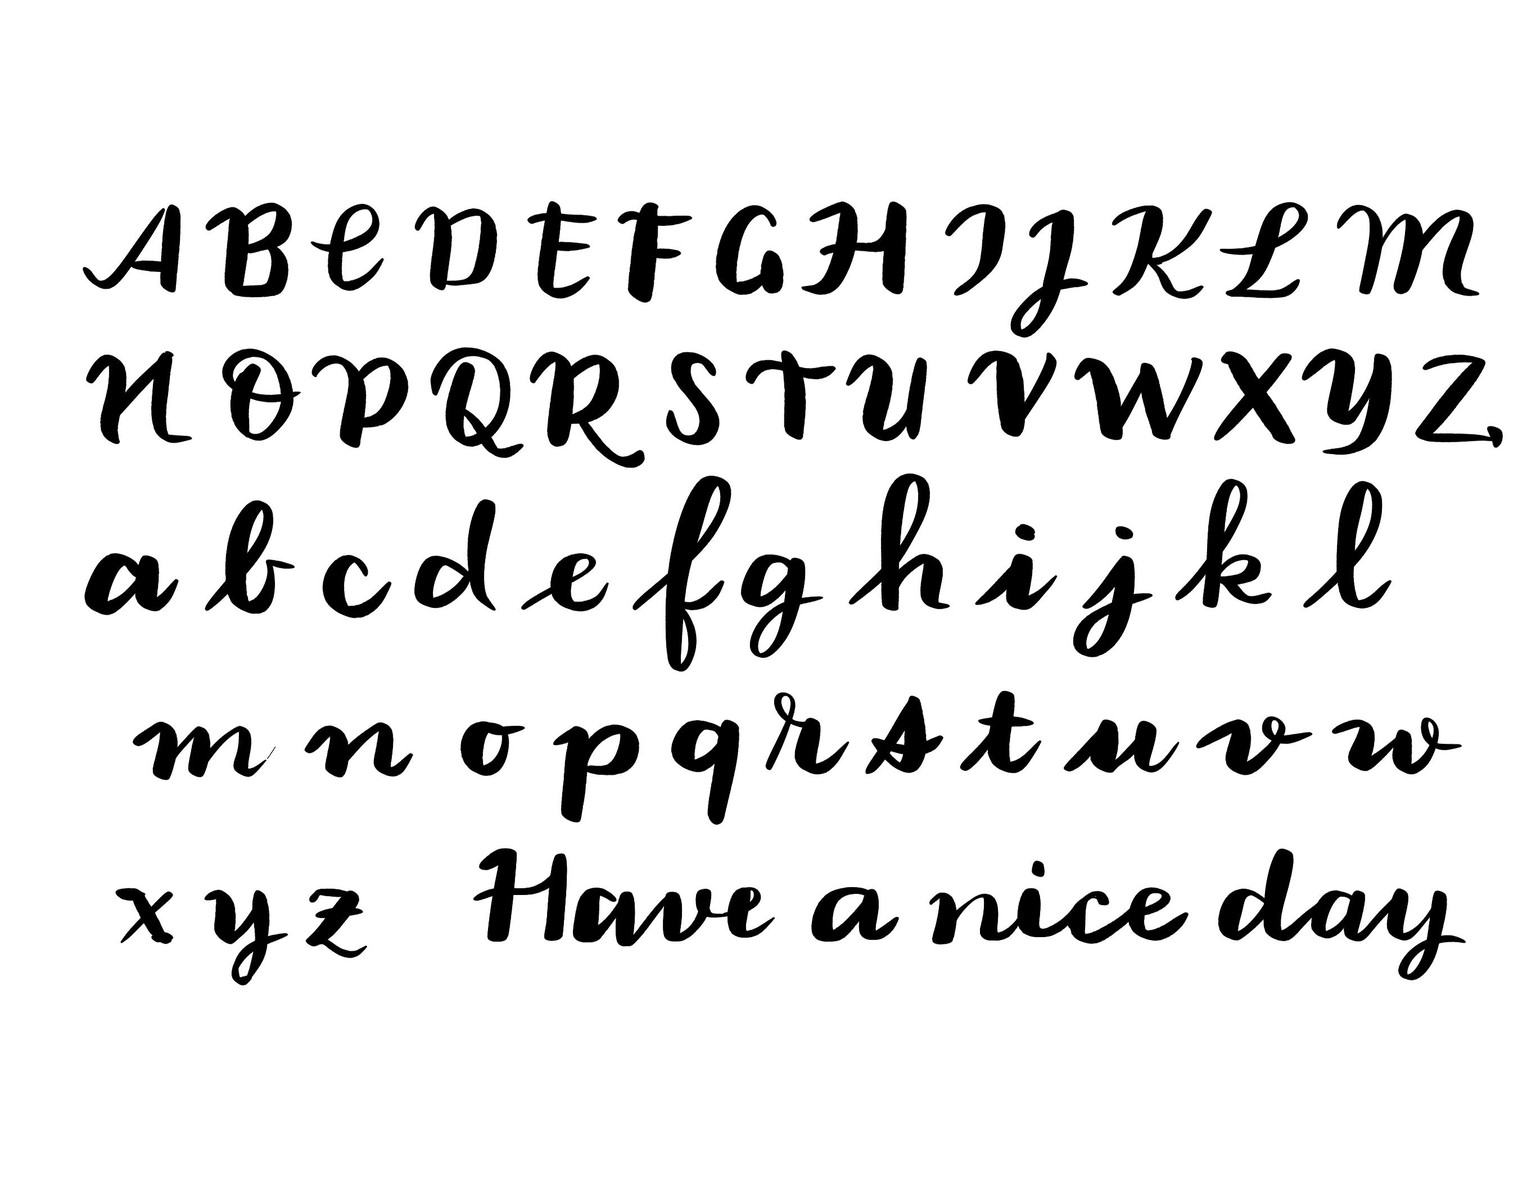 A B C D E F G H I J K L M
N O P Q R S T U V W X Y Z
a b c d e f g h i j k l
m n o p q r s t u v w
x y z Have a nice day